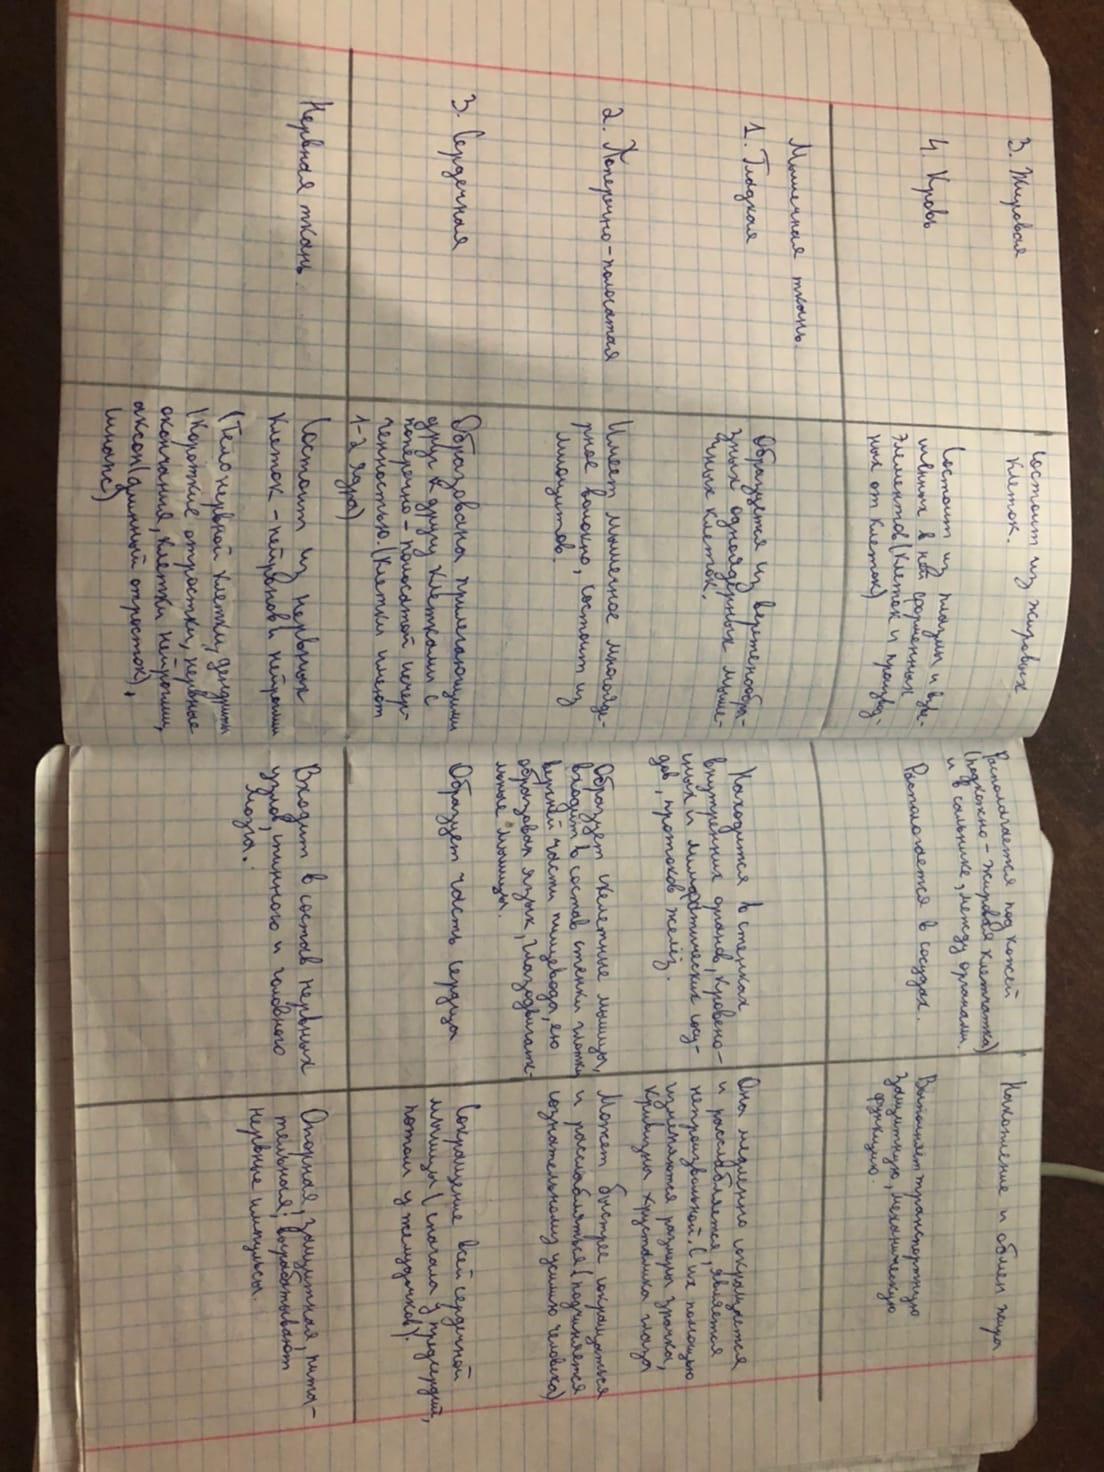 3. Жировая
Состоит из жировых
клеток.
Располагается под кожей
(подкожно-жировая клетчатка)
и в сальнике, между органами.
Накопление и обмен жира
4. Кровь
Состоит из плазмы и взве-
шенных в ней форменных
элементов (клеток и производ-
ных от клеток)
Располагается в сосудах.
Выполняет транспортную
защитную, механическую
функцию.
Мышечная ткань.
1. Гладкая
Образуется из веретенообра-
зных одноядерных мыше-
чных клеток.
Находится в стенках
внутренних органов, кровено-
сных и лимфатических сосу-
дов, протоков желёз.
Они медленно сокращается
и расслабляется, является
непроизвольной. С их помощью
изменяются размеры зрачка,
кривизны хрусталика глаза
2. Поперечно-полосатая
Имеет мышечное многояде-
рное волокно, состоит из
миоцитов.
Образует скелетные мышцы,
входит в состав стенки глотки
верхней части пищевода, ею
образован язык, глазодвигате-
льные мышцы.
Может быстрее сокращаться
и расслабляться (подчиняется
сознательному усилию человека)
3. Сердечная
Образована прилегающими
друг к другу клетками с
поперечно-полосатой исчер-
ченностью. (Клетки имеют
1-2 ядра)
Образует часть сердца
Сокращение всей сердечной
мышцы (сначала у предсердий,
потом у желудочков).
Нервная ткань.
Состоит из нервных
клеток - нейронов и нейроглии
(Тело нервной клетки, дендриты
(Короткие отростки, нервные
окончания, клетки нейроглии,
аксон (длинный отросток),
синапс)
Входит в состав нервных
узлов, спинного и головного
мозга.
Опорная, защитная, пита-
тельная; вырабатывают
нервные импульсы.